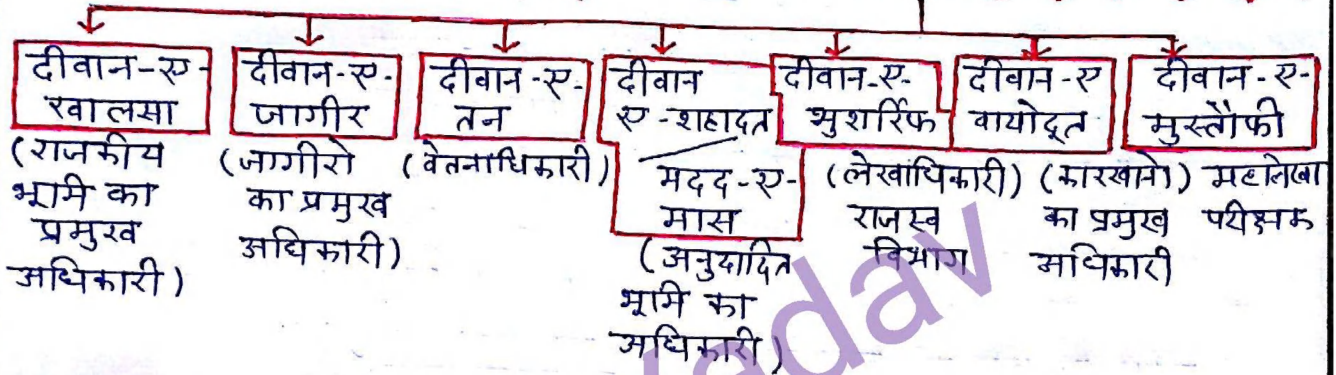 दीवान-ए-
खालसा
(राजकीय
भूमि का
प्रमुख
अधिकारी)
दीवान-ए-
जागीर
(जागीरो
का प्रमुख
अधिकारी)
दीवान-ए-
तन
(वेतनाधिकारी)
दीवान
ए-शहादत
मदद-ए-
मास
(अनुदादित
भूमि का
अधिकारी)
दीवान-ए-
मुशर्रिफ
(लेखाधिकारी)
राजस्व
विभाग
दीवान-ए
वायोदूत
(कारखानो)
का प्रमुख
अधिकारी
दीवान-ए-
मुस्तौफी
महालेखा
परीक्षक
yadav